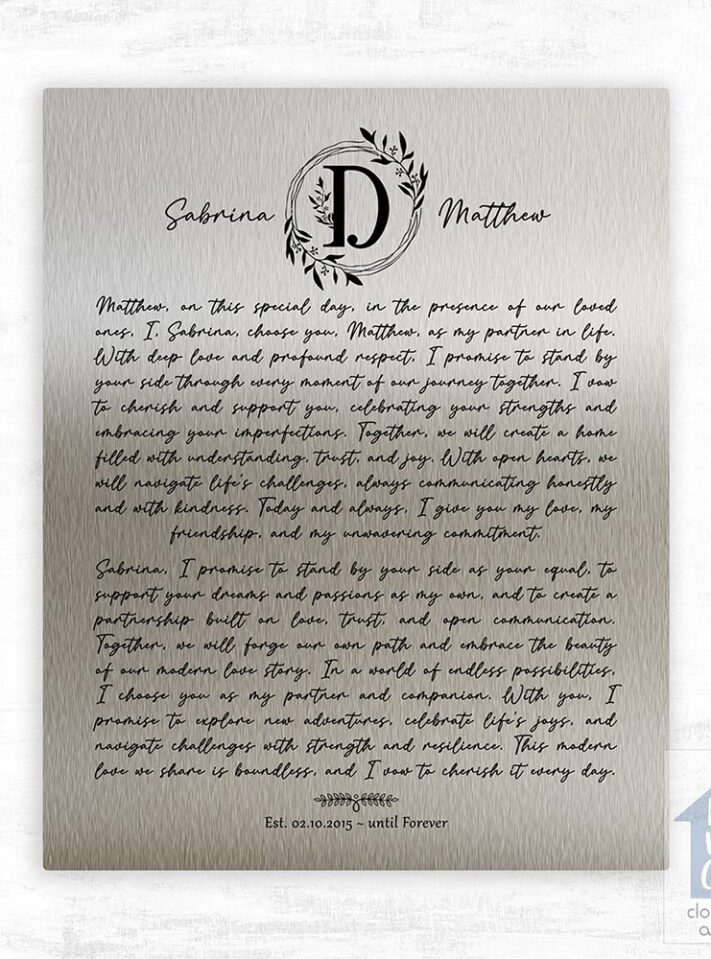 Sabrina D Matthew
Matthew, on this special day, in the presence of our loved
ones, I, Sabrina, choose you, Matthew, as my partner in life.
With deep love and profound respect, I promise to stand by
your side through every moment of our journey together. I vow
to cherish and support you, celebrating your strengths and
embracing your imperfections. Together, we will create a home
filled with understanding, trust, and joy. With open hearts, we
will navigate life's challenges, always communicating honestly
and with kindness. Today and always, I give you my love, my
friendship, and my unwavering commitment.
Sabrina, I promise to stand by your side as your equal, to
support your dreams and passions as my own, and to create a
partnership built on love, trust, and open communication.
Together, we will forge our own path and embrace the beauty
of our modern love story. In a world of endless possibilities,
I choose you as my partner and companion. With you, I
promise to explore new adventures, celebrate life's joys, and
navigate challenges with strength and resilience. This modern
love we share is boundless, and I vow to cherish it every day.
Est. 02.10.2015 ~ until Forever